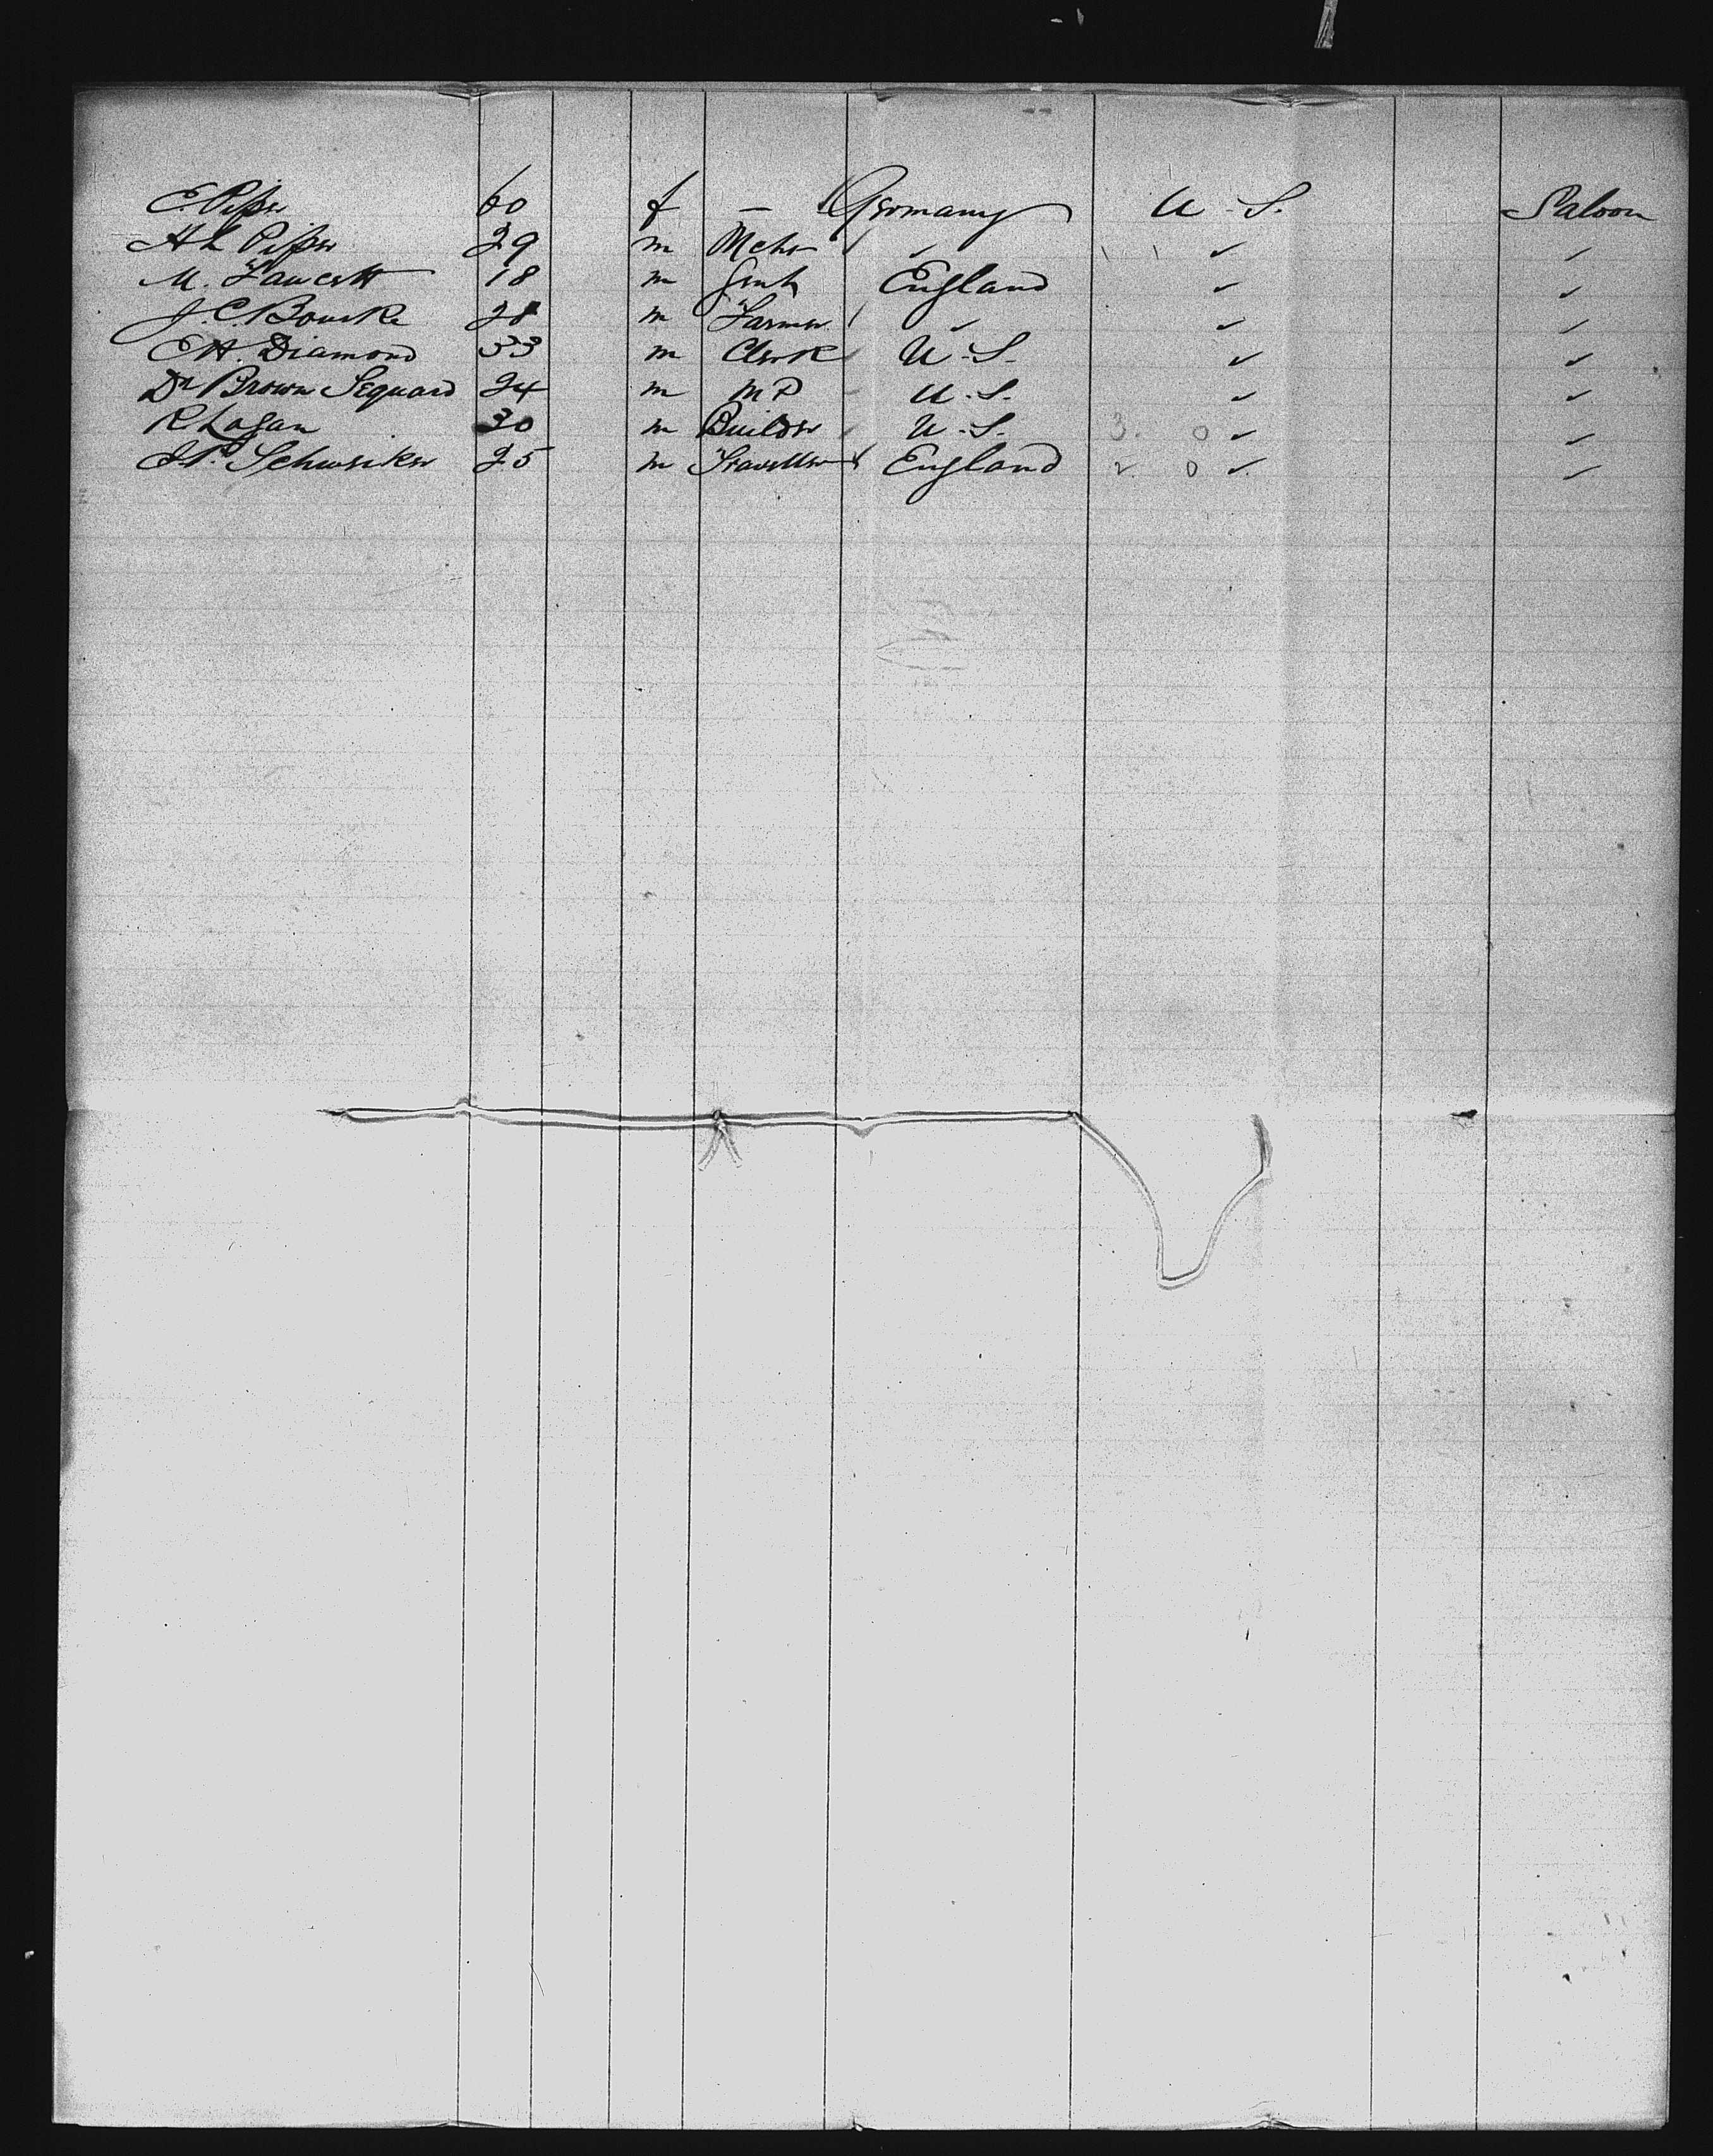 E. Pifser 60 f — Germany U.S. Saloon
H L Pifser 29 m Mcht ✓ ✓ ✓
M. Fawcett 18 m Gent England ✓ ✓
J. C. Bourke 28 m Farmer ✓ ✓ ✓
E H. Diamond 33 m Clerk U.S. ✓ ✓
Dr Brown Sequard 24 m MD U.S. ✓ ✓
R Logan 30 m Builder U.S. 3. 0 ✓ ✓
25 m Traveller England 2 0 ✓ ✓